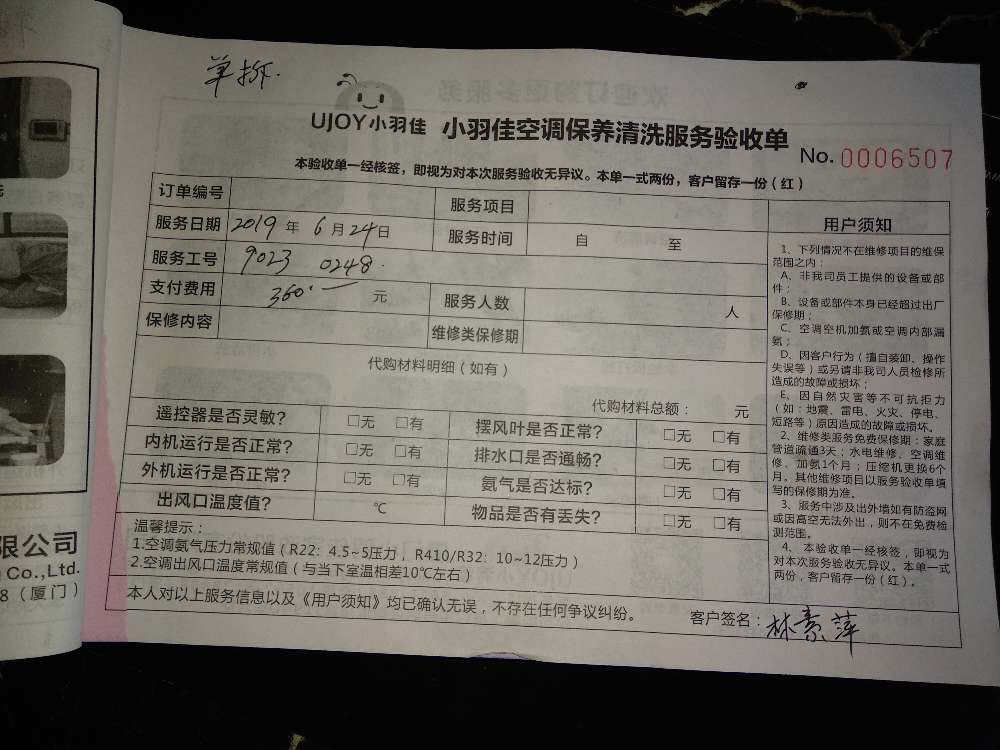 单拆.
UJOY小羽佳 小羽佳空调保养清洗服务验收单
No. 0006507
本验收单一经核签，即视为对本次服务验收无异议。本单一式两份，客户留存一份（红）
订单编号 服务项目
服务日期 2019 年 6 月 24 日 服务时间 自 至
服务工号 9023 0248.
支付费用 360. 元 服务人数 人
保修内容 维修类保修期
代购材料明细（如有）
代购材料总额： 元
遥控器是否灵敏？ □无 □有 摆风叶是否正常？ □无 □有
内机运行是否正常？ □无 □有 排水口是否通畅？ □无 □有
外机运行是否正常？ □无 □有 氨气是否达标？ □无 □有
出风口温度值？ ℃ 物品是否有丢失？ □无 □有
温馨提示：
1.空调氨气压力常规值（R22：4.5~5压力，R410/R32：10~12压力）
2.空调出风口温度常规值（与当下室温相差10℃左右）
本人对以上服务信息以及《用户须知》均已确认无误，不存在任何争议纠纷。 客户签名：林素萍
用户须知
1、下列情况不在维修项目的维保
范围之内：
A、非我司员工提供的设备或部
件；
B、设备或部件本身已经超过出厂
保修期；
C、空调空机加氨或空调内部漏
氨；
D、因客户行为（擅自装卸、操作
失误等）或另请非我司人员检修所
造成的故障或损坏；
E、因自然灾害等不可抗拒力
（如：地震、雷电、火灾、停电、
短路等）原因造成的故障或损坏。
2、维修类服务免费保修期：家庭
管道疏通3天；水电维修、空调维
修、加氨1个月；压缩机更换6个
月。其他维修项目以服务验收单填
写的保修期为准。
3、服务中涉及出外墙如有防盗网
或因高空无法外出，则不在免费检
测范围。
4、本验收单一经核签，即视为
对本次服务验收无异议。本单一式
两份，客户留存一份（红）。
限公司
Co.,Ltd.
8（厦门）